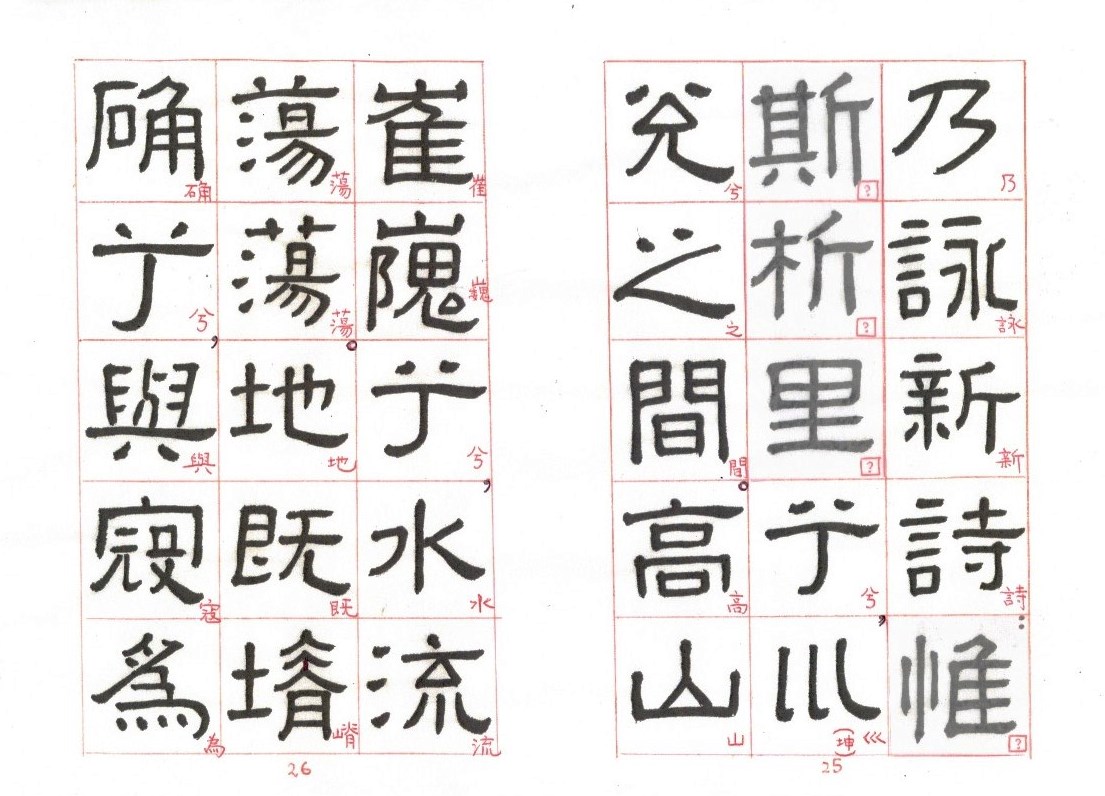 乃詠新詩：惟
乃詠新詩?
斯析里兮，巛
???兮巛(坤)
兊之間。高山
兮之間高山
25
崔巍兮，水流
崔巍兮水流
蕩蕩。地既塉
蕩蕩地既嵴
确兮，與寇為
确兮與寇為
26